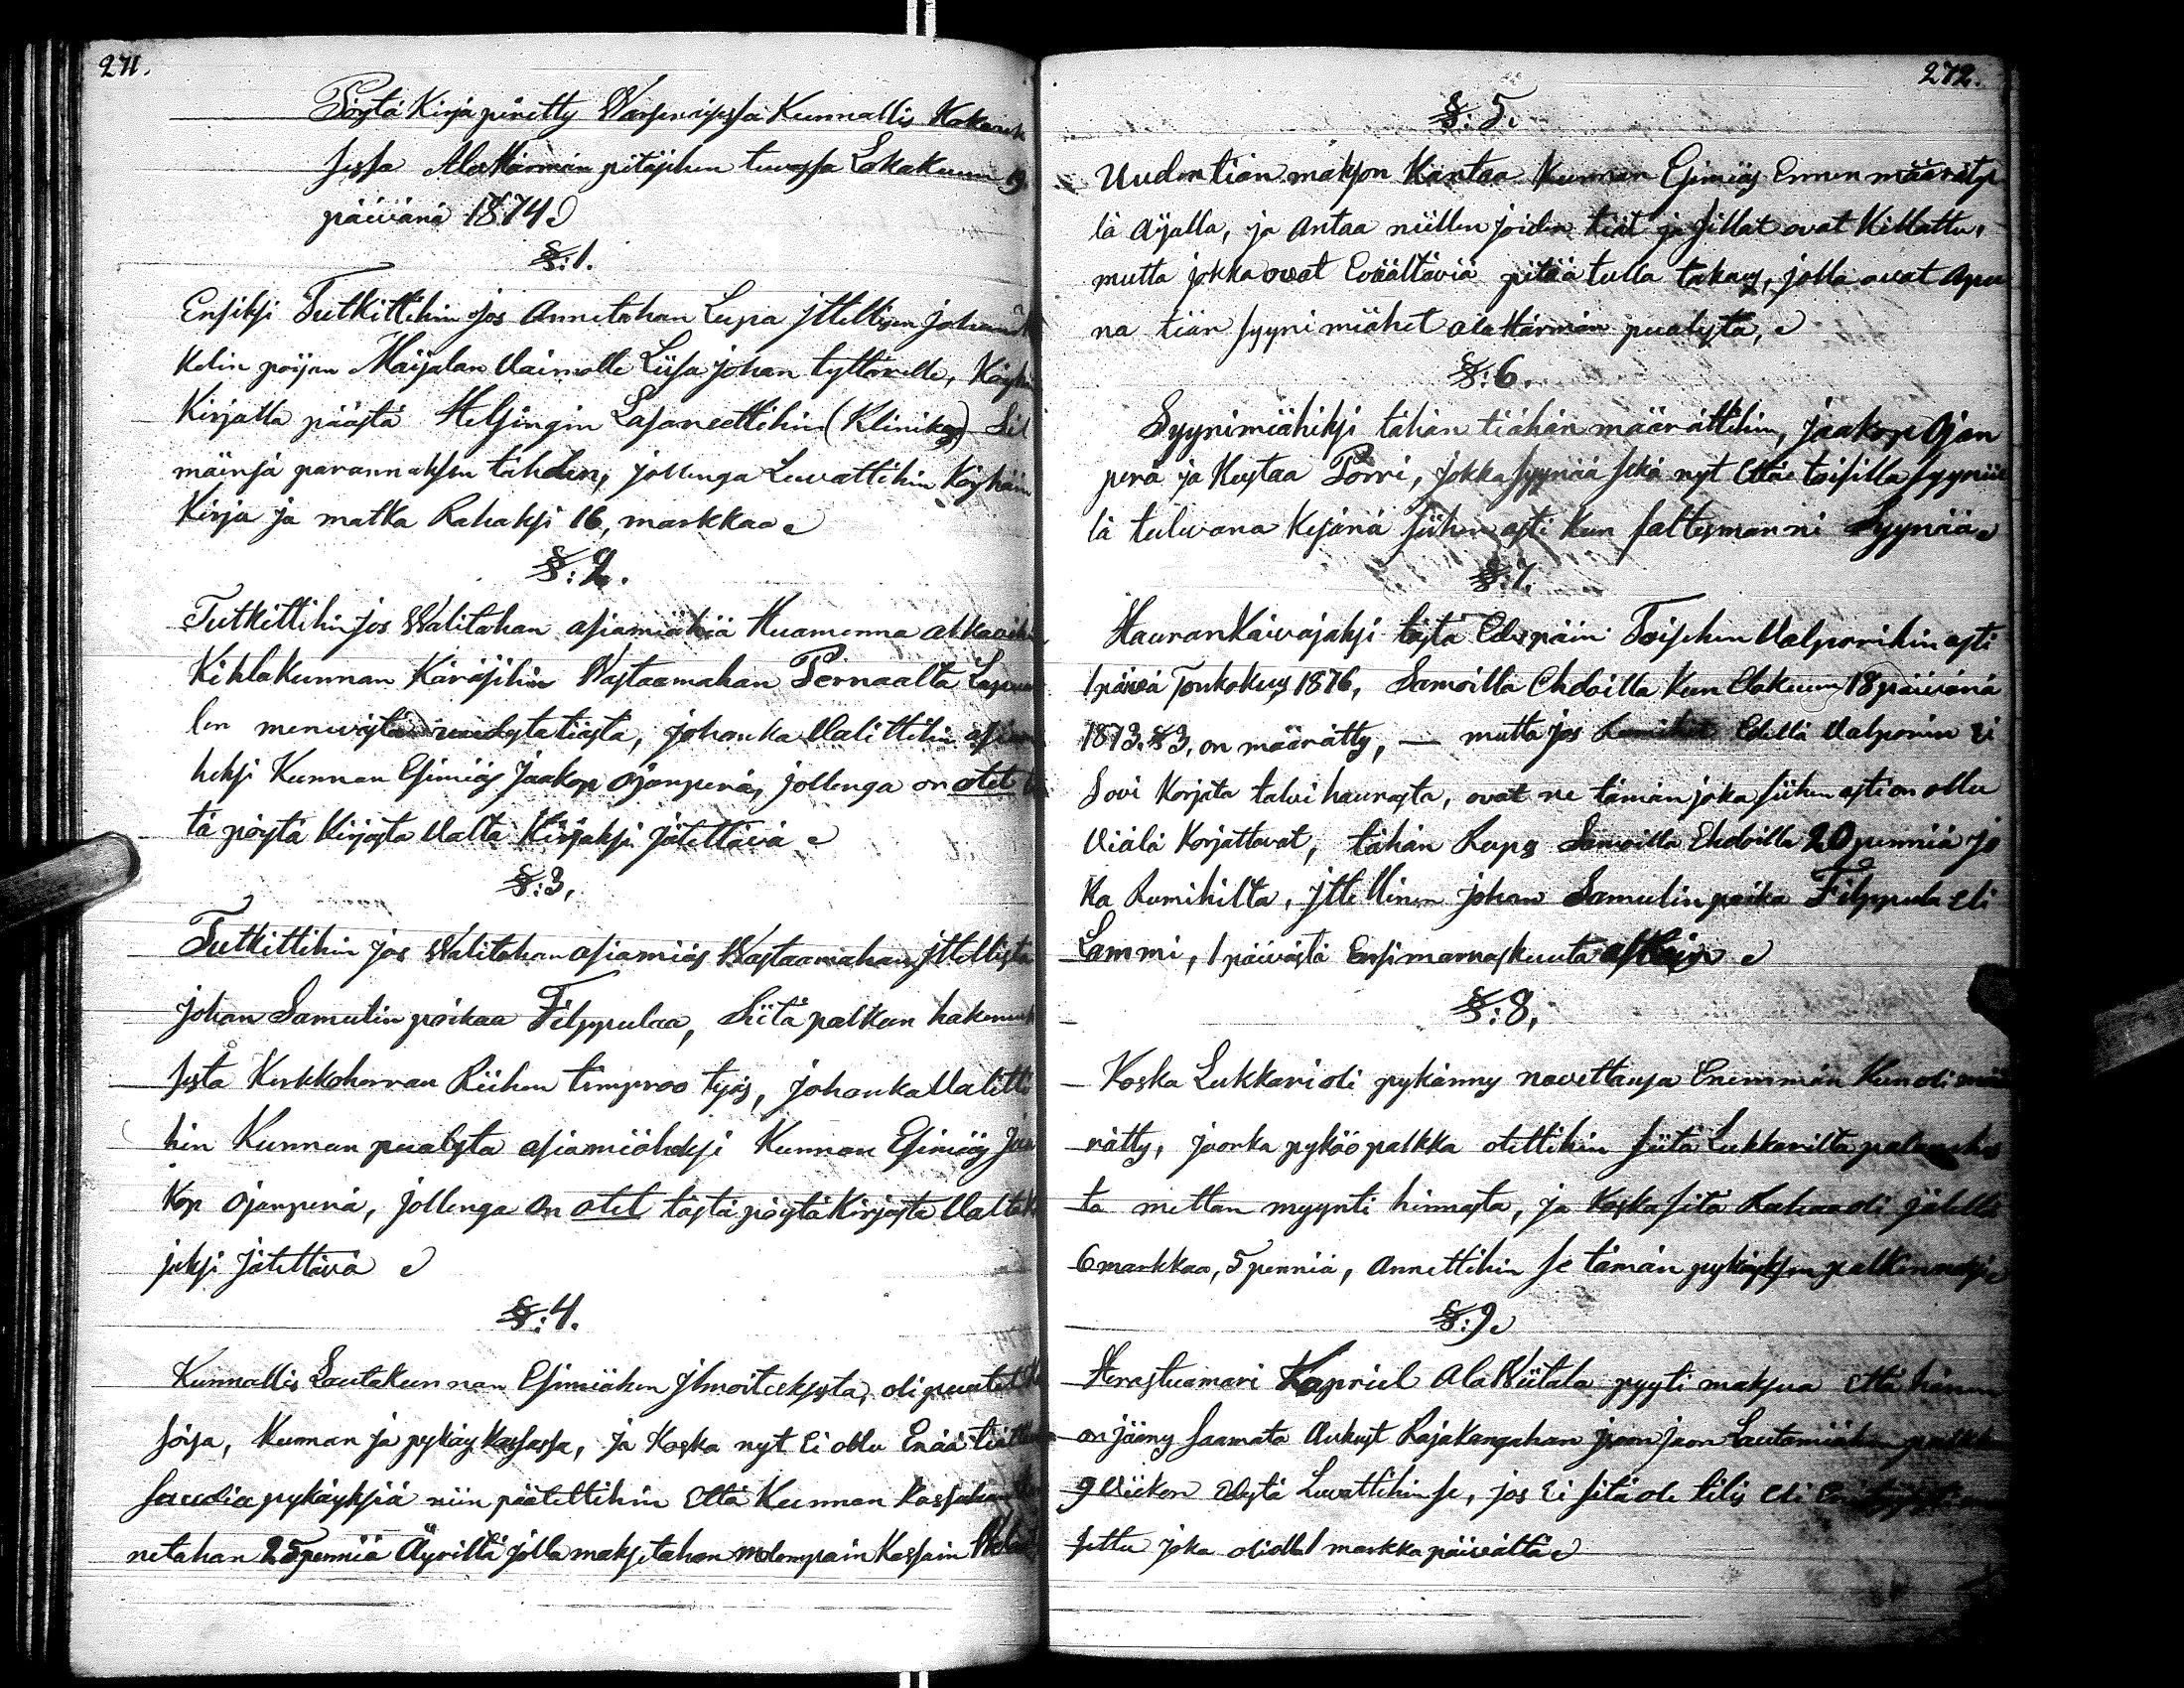 271.
Pöytä Kirja piretty Warsinaisessa Kunnallis Kokouk
sessa AlaHärmän pitäjähen tuvassa Lokakuun 19
päivänä 1874
§:1.
Ensiksi Tutkittihin jos Annetahan Lupa jttellisen Johan
Kelin poijan Maijalan Vaimolle Liisa johan tyttärelle, Köyhä
Kirjalla päästä Helsingin Lasareettihin (Klinikas) Sil
mäinsä parannuksen tähden, jollenga Luvattihin Köyhäin
Kirja ja matka Rahaksi 16, markkaa
§:2.
Tutkittihin jos Walitahan asiamiähiä Huamenna alkavihin
Kihlakunnan Käräjihin Wastaamahan Pernaalta Lapuu
len menevästä uudesta tiästä, johonka Valittihin asiam
heksi Kunnan Esimiäs Jaakop Ojanperä, jollenga on otet
tä pöytä Kirjasta Valta Kirjaksi jätettävä
§:3,
Tutkittihin jos Walitahan asiamiäs Wastaamahan jttellistä
johan Samulin poikaa Filppulaa, Siitä palkan hakemuk
sesta Kirkkoherran Riihen timproo työs, johonka Valitti
hin Kunnan pualesta asiamiäheksi Kunnan Esimiäs Jaa
Kop Ojanperä, jollenga on otet tästä pöytä Kirjasta ValtaK
jaksi jätettävä
§:4.
Kunnallis Lautakunnan Esimiähen jlmoituksesta, oli puutet
söisa, Kunnan ja pykäys Kassassa, ja Koska nyt Ei ollu Enää tiätt
saudia pykäyksiä niin päätettihin Että Kunnan Kassahan
netahan 25 penniä Äyriltä jolla maksetahan molempain Kassain Welat
272.
§:5.
Uuden tiän makson Kantaa Kunnan Esimiäs Ennen määrätyl
lä Aijalla, ja Antaa niillen joiden tiät ja sillat ovat Killattu,
mutta jokka ovat Evääitäviä pitää tulla takas, jolla ovat Apu
na tiän syyni miähet ala Härmän pualesta,
§:6.
Syynimiähiksi tähän tiähän määrättihin, jaakop Ojan
perä ja Kustaa Porri, jokka syynää sekä nyt Että toisilla syynii
lä tulevana Kesänä siihen asti kun faltesmanni Syynää
§:7.
Hauran Kaivajaksi tästä Edespäin Toisehen Valporihin asti
1 päivä Toukokuus 1876, Samoilla Ehdoilla Kun Elokuun 18 päivänä
1873. §3, on määrätty, — mutta jos Edellä Valporin Ei
Sovi Korjata talvi haurasta, ovat ne tämän joka siihen asti on ollu
Viälä Korjattavat, tähän Rupes Samoilla Ehdoilla 20 penniä jo
ka Rumihilta, jttellinen johan Samulin poika Filppula eli
Lammi, 1 päivästä Ensimarraskuuta alkain
§:8,
Koska Lukkari oli pykänny navettansa Enemmän Kun oli mää
rätty, jaonka pyköö palkka otettihin siitä Lukkarilta
ta mettan myynti hinnasta, ja Koska sitä Rahaa oli jälellä
6 markkaa, 5 penniä, Annettihin se tämän pykäyksen palkinnoksi
§:9.
Herastuamari Kapriel AlaWiitala pyyti maksua Että hänen
on jääny saamata Aukust Rajakangahan jaon Lautamiähen palkka
9 Viikon Edestä Luvattihin se, jos Ei sitä ole tilis eli
settu joka oli ollu 1 markka päivältä